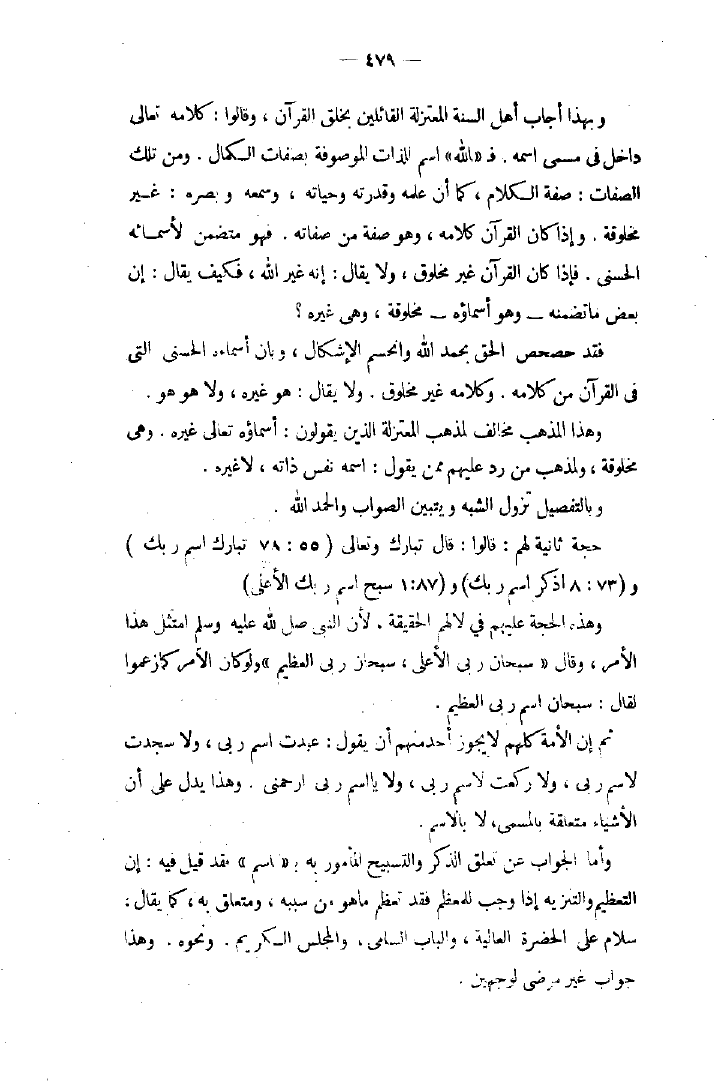 — ٤٧٩ —
وبهذا أجاب أهل السنة المعتزلة القائلين بخلق القرآن ، وقالوا : كلامه تعالى
داخل فى مسمى اسمه . فـ «الله» اسم الذات الموصوفة بصفات الكمال . ومن تلك
الصفات : صفة الكلام ، كما أن علمه وقدرته وحياته ، وسمعه وبصره : غير
مخلوقة . وإذا كان القرآن كلامه ، وهو صفة من صفاته . فهو متضمن لأسمائه
الحسنى . فإذا كان القرآن غير مخلوق ، ولا يقال : إنه غير الله ، فكيف يقال : إن
بعض ماتضمنه — وهو أسماؤه — مخلوقة ، وهى غيره ؟
فقد حصحص الحق بحمد الله وانحسم الإشكال ، وبان أسماءه الحسنى التى
فى القرآن من كلامه . وكلامه غير مخلوق . ولا يقال : هو غيره ، ولا هو هو .
وهذا المذهب مخالف لمذهب المعتزلة الذين يقولون : أسماؤه تعالى غيره . وهى
مخلوقة ، ولمذهب من رد عليهم ممن يقول : اسمه نفس ذاته ، لاغيره .
وبالتفصيل تزول الشبه ويتبين الصواب والحمد الله .
حجة ثانية لهم : قالوا : قال تبارك وتعالى ( ٥٥ : ٧٨ تبارك اسم ربك )
و (٧٣ : ٨ اذكر اسم ربك) و (٨٧:١ سبح اسم ربك الأعلى)
وهذه الحجة عليهم في لالهم الحقيقة . لأن النبى صل لله عليه وسلم امتثل هذا
الأمر ، وقال « سبحان ربى الأعلى ، سبحان ربى العظيم » ولوكان الأمر كمازعموا
لقال : سبحان اسم ربى العظيم .
ثم إن الأمة كلهم لايجوز أحدمنهم أن يقول : عبدت اسم ربى ، ولا سجدت
لاسم ربى ، ولا ركعت لاسم ربى ، ولا يااسم ربى ارحمنى . وهذا يدل على أن
الأشياء متعلقة بالمسمى، لا بالاسم .
وأما الجواب عن تعلق الذكر والتسبيح المأمور به بـ « اسم » فقد قيل فيه : إن
التعظيم والتنزيه إذا وجب للمعظم فقد تعظم ماهو من سببه ، ومتعلق به ، كما يقال :
سلام على الحضرة العالية ، والباب السامى ، والمجلس الكريم . ونحوه . وهذا
جواب غير مرضى لوجهين .